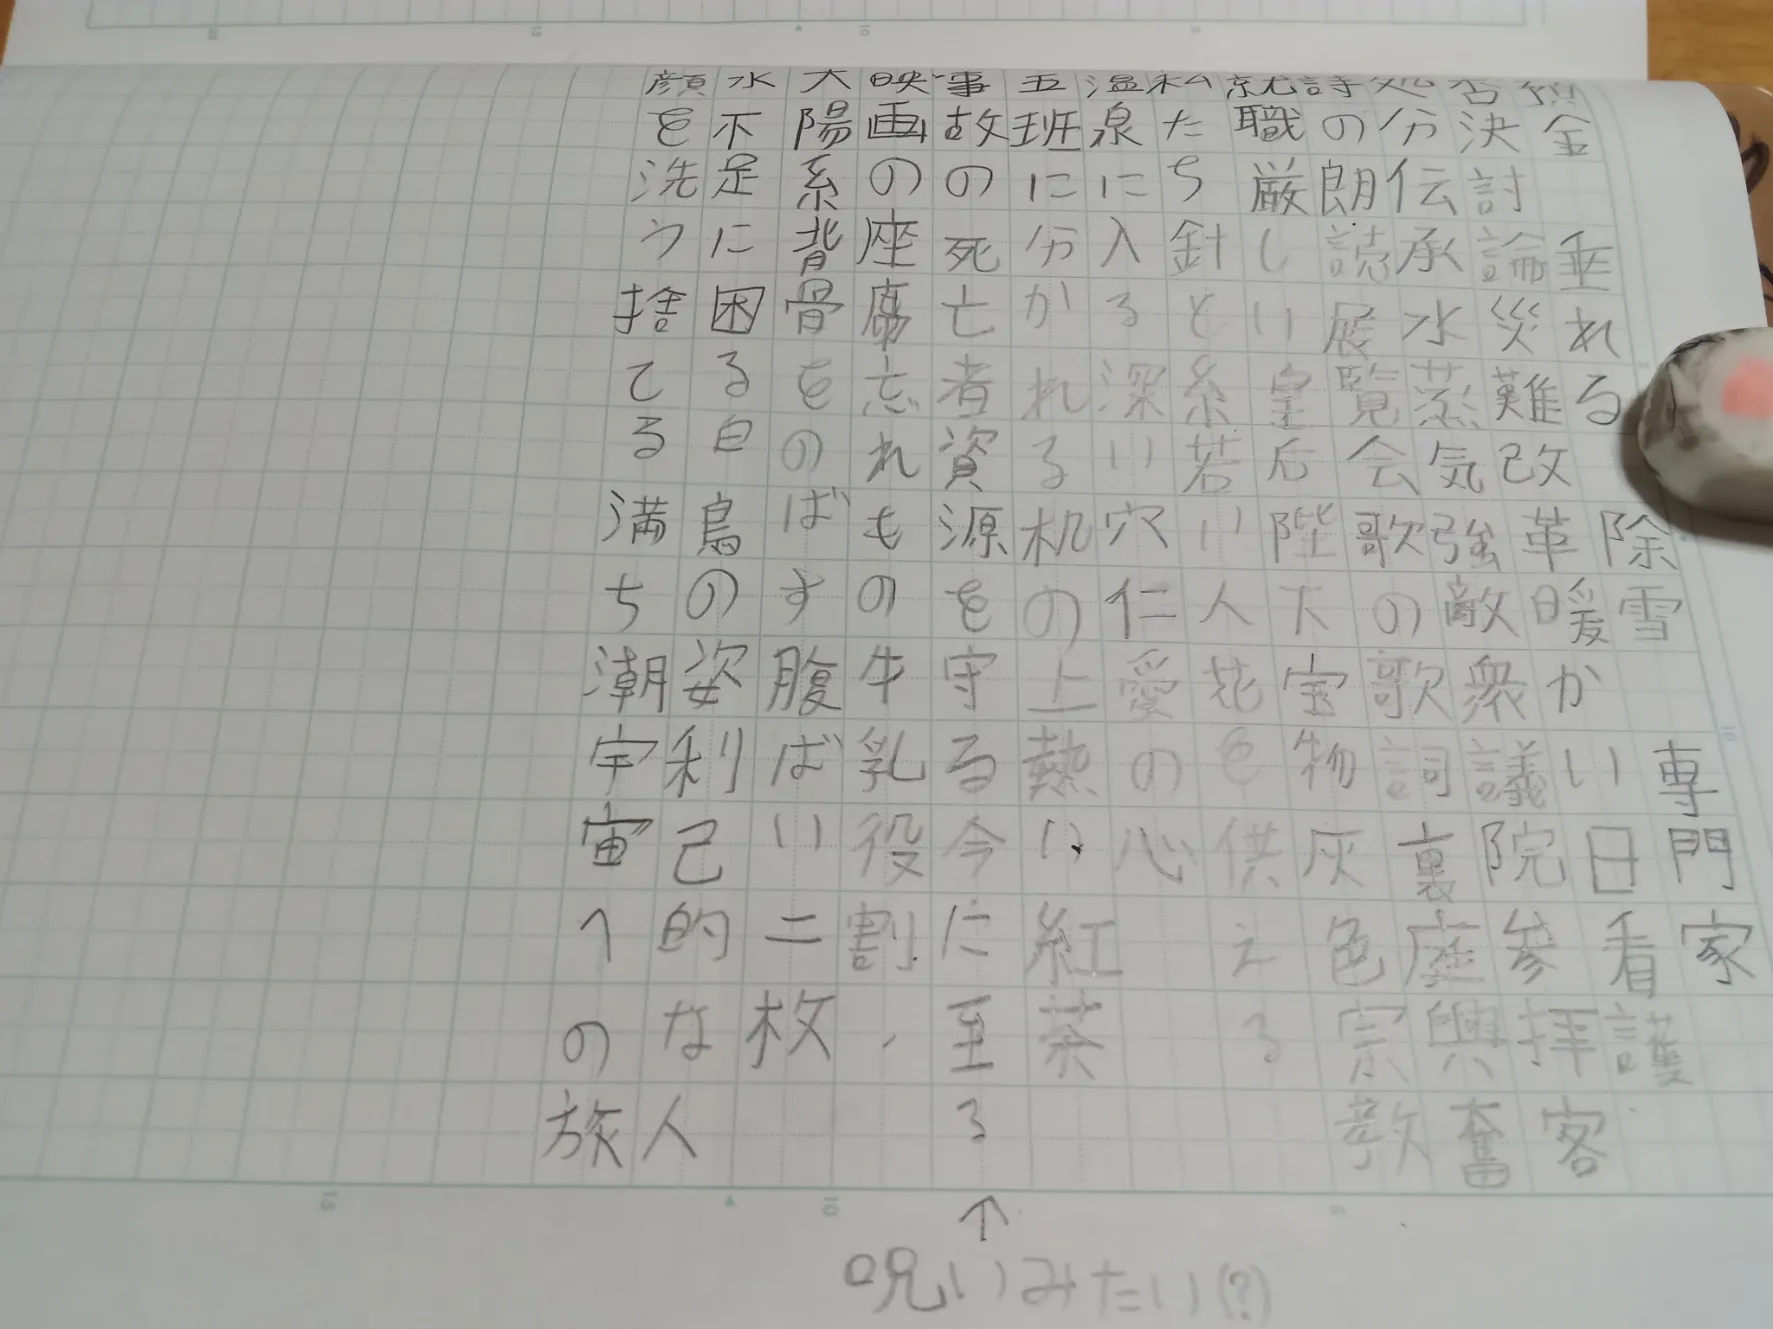 預金垂れる除雪専門家
否決討論災難改革暖かい日看護
処分伝承水蒸気強敵衆議院参拝客
詩の朗読展覧会歌の歌詞裏庭興奮
就職厳しい皇后陛下宝物灰色宗教
私たち針と糸若い人花を供える
温泉に入る深い穴仁愛の心
五班に分かれる机の上熱い紅茶
事故の死亡者資源を守る今に至る
映画の座席忘れもの牛乳役割、
大陽系背骨をのばす腹ばい二枚
水不足に困る白鳥の姿利己的な人
顔を洗う捨てる満ち潮宇宙への旅人
↑
呪いみたい(?)